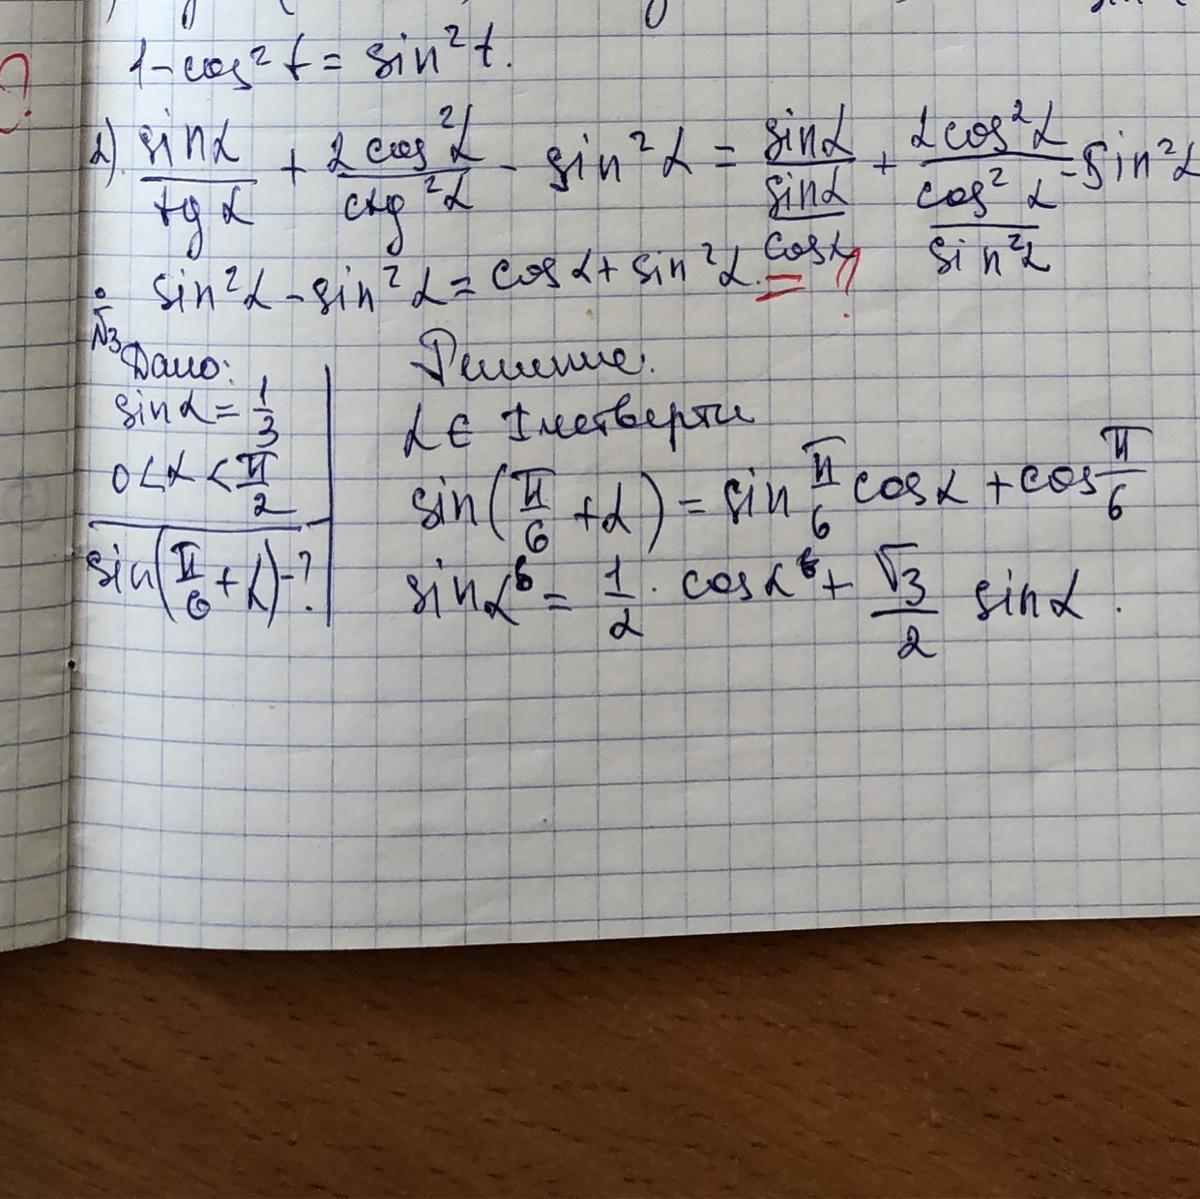 1-cos²t = sin²t.
2). sinα/tgα + 2cos²α/ctg²α - sin²α = sinα/(sinα/cosα) + 2cos²α/(cos²α/sin²α) - sin²α
sin²α - sin²α = cosα + sin²α. = ?
№3
Дано:
sinα = 1/3
0 < α < π/2
sin(π/6 + α) - ?
Решение.
α ∈ I четверти
sin(π/6 + α) = sin π/6 cosα + cos π/6
sinα = 1/2 · cosα + √3/2 sinα.